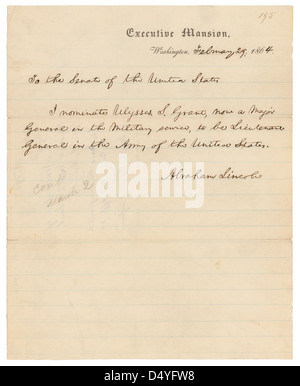 195
Executive Mansion,
Washington, February 29, 1864.
To the Senate of the United States
I nominate Ulysses S. Grant, now a Major
General in the Military service, to be Lieutenant
General in the Army of the United States.
Abraham Lincoln
March 2
alamy
D4YFW8
www.alamy.com